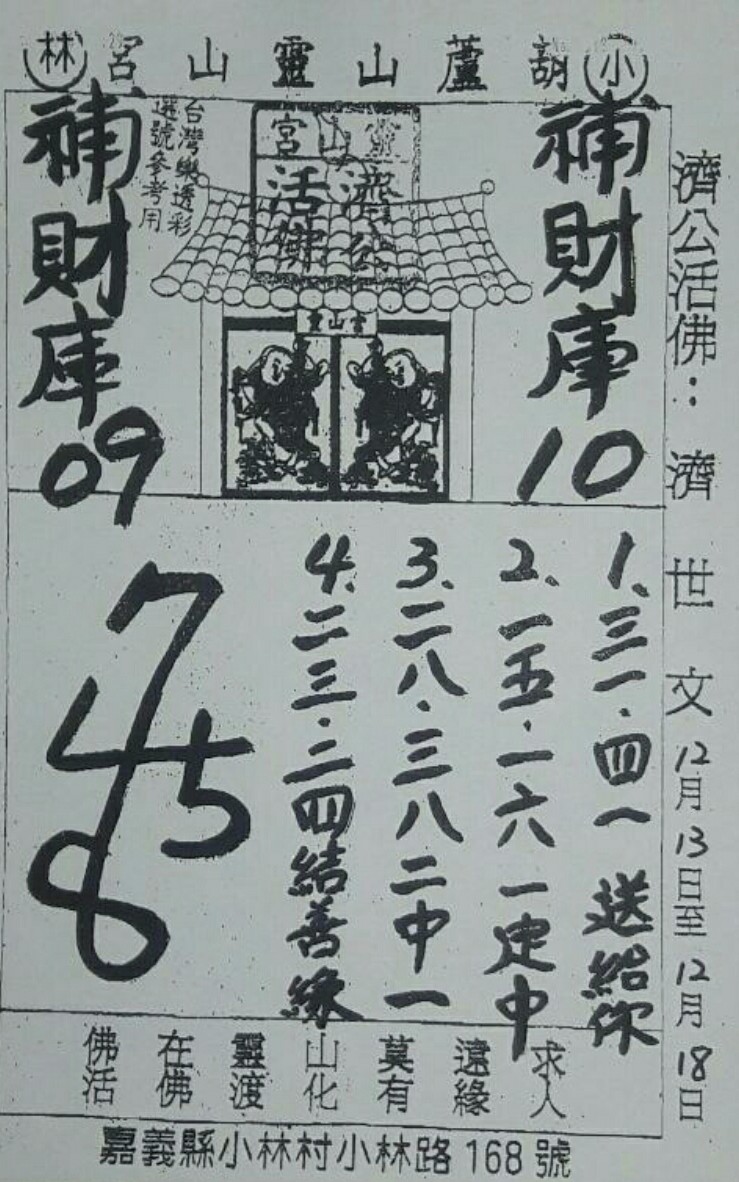 小胡蘆山靈山宮林
濟公活佛：濟世文12月13日至12月18日
補財庫10
靈山宮
濟公
活佛
靈山宮
台灣樂透彩
選號參考用
補財庫09
1、三一、四一送給你
2、一五·一六一定中
3、二八·三八二中一
4、二三·二四結善緣
7
4 5
8
佛在靈山莫遠求
活佛渡化有緣人
嘉義縣小林村小林路168號